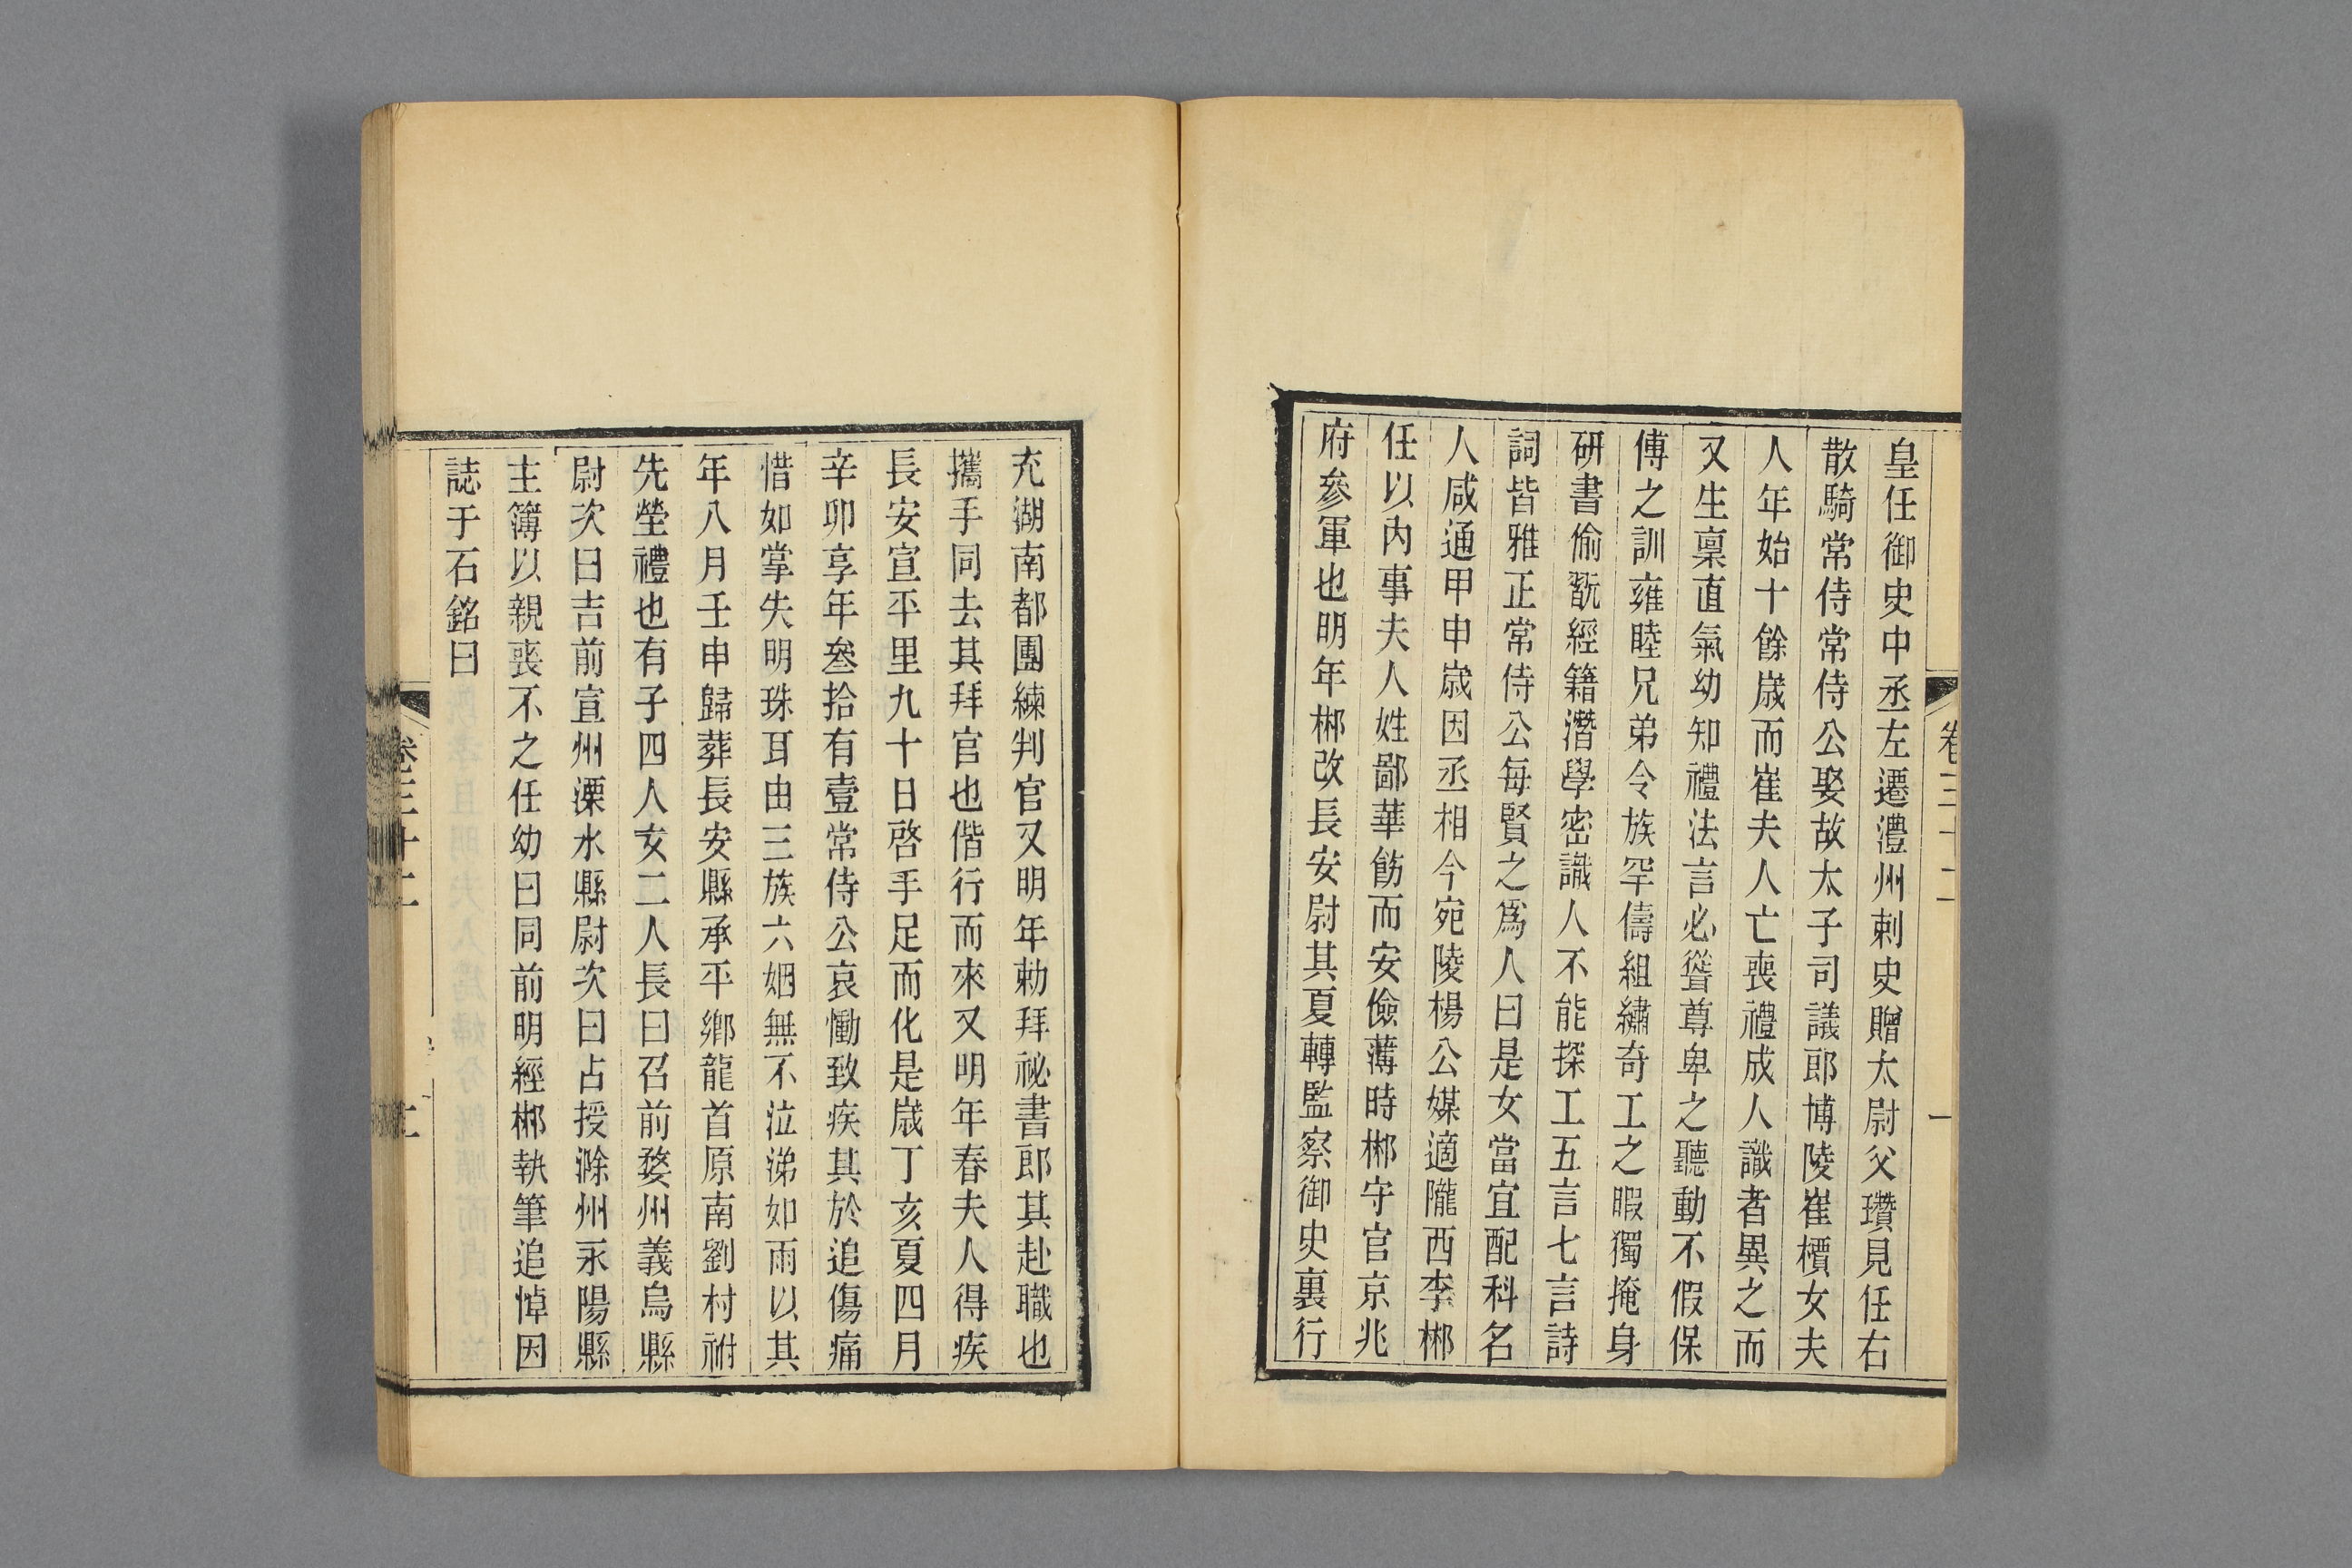 皇任御史中丞左遷澧州刺史贈太尉父瓚見任右
散騎常侍常侍公娶故太子司議郎博陵崔樻女夫
人年始十餘歲而崔夫人亡喪禮成人識者異之而
又生稟直氣幼知禮法言必聳尊卑之聽動不假保
傅之訓雍睦兄弟令族罕儔組繡奇工之暇獨掩身
研書偷翫經籍潛學密識人不能探工五言七言詩
詞皆雅正常侍公每賢之爲人曰是女當宜配科名
人咸通甲申歲因丞相今宛陵楊公媒適隴西李郴
任以內事夫人姓鄙華飭而安儉薄時郴守官京兆
府參軍也明年郴改長安尉其夏轉監察御史裏行
卷三十二
一
充湖南都團練判官又明年勅拜祕書郎其赴職也
攜手同去其拜官也偕行而來又明年春夫人得疾
長安宣平里九十日啓手足而化是歲丁亥夏四月
辛卯享年叄拾有壹常侍公哀慟致疾其於追傷痛
惜如掌失明珠耳由三族六姻無不泣涕如雨以其
年八月壬申歸葬長安縣承平鄉龍首原南劉村祔
先塋禮也有子四人女二人長曰召前婺州義烏縣
尉次曰吉前宣州溧水縣尉次曰占授滁州永陽縣
主簿以親喪不之任幼曰同前明經郴執筆追悼因
誌于石銘曰
卷三十二